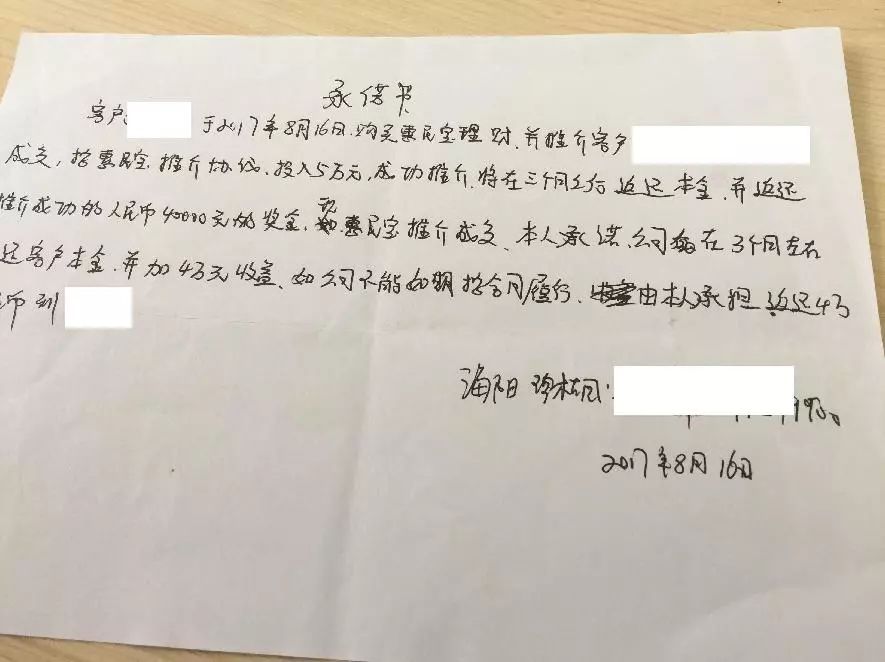 承诺书
客户 于2017年8月16日.购买惠民宝理财.并推介客户
成交,按惠民宝推介协议,投入5万元,成功推介.将在三个月左右返还本金.并返还
推介成功的人民币40000元的奖金. 惠民宝推介成交、本人承诺.公司 在3个月左右
还客户本金.并加4万元收益、如公司不能如期按合同履行、由本人承担返还4万
币到
海阳
2017年8月16日